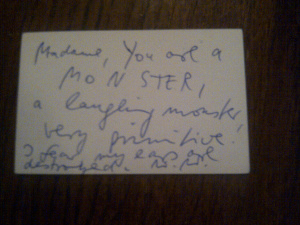 Madame, You are a
MONSTER,
a laughing monster,
very primitive.
I fear my ears are
destroyed.